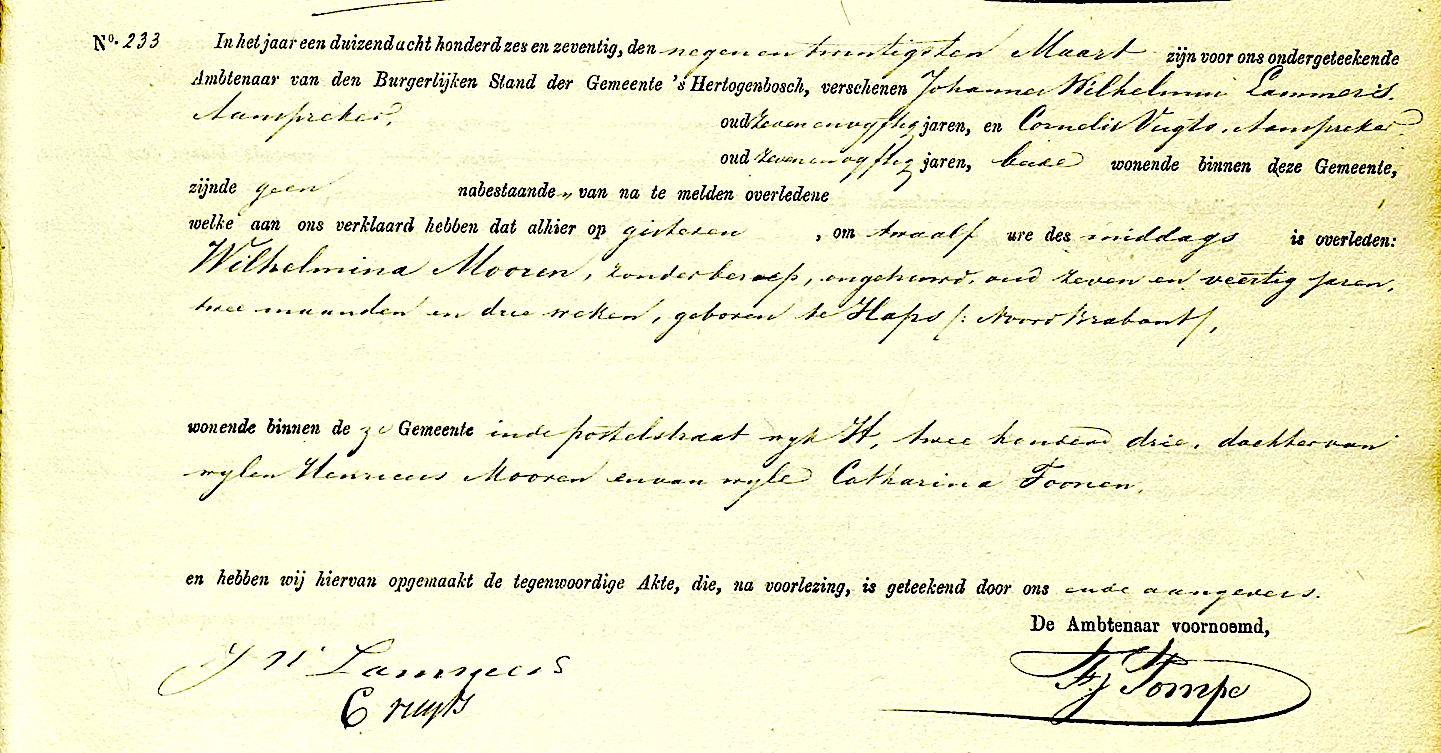 No. 233 In het jaar een duizend acht honderd zes en zeventig, den negen en twintigsten Maart zijn voor ons ondergeteekende
Ambtenaar van den Burgerlijken Stand der Gemeente 's Hertogenbosch, verschenen Johannes Wilhelmus Lammers,
Aanspreker, oud zeven en vyftig jaren, en Cornelis Vugts, Aanspreker
oud zeven en vyftig jaren, beide wonende binnen deze Gemeente,
zijnde geen nabestaande „ van na te melden overledene
welke aan ons verklaard hebben dat alhier op gisteren , om twaalf ure des middags is overleden:
Wilhelmina Mooren, zonder beroep, ongehuwd, oud zeven en veertig jaren,
twee maanden en drie weken, geboren te Haps /: Noord Brabant /,
wonende binnen de ze Gemeente in de postelstraat wyk H, twee honderd drie, dochter van
wylen Henricus Mooren en van wyle Catharina Toonen,
en hebben wij hiervan opgemaakt de tegenwoordige Akte, die, na voorlezing, is geteekend door ons en de aangevers.
De Ambtenaar voornoemd,
J W Lammers
C Vugts
FJ Pompe